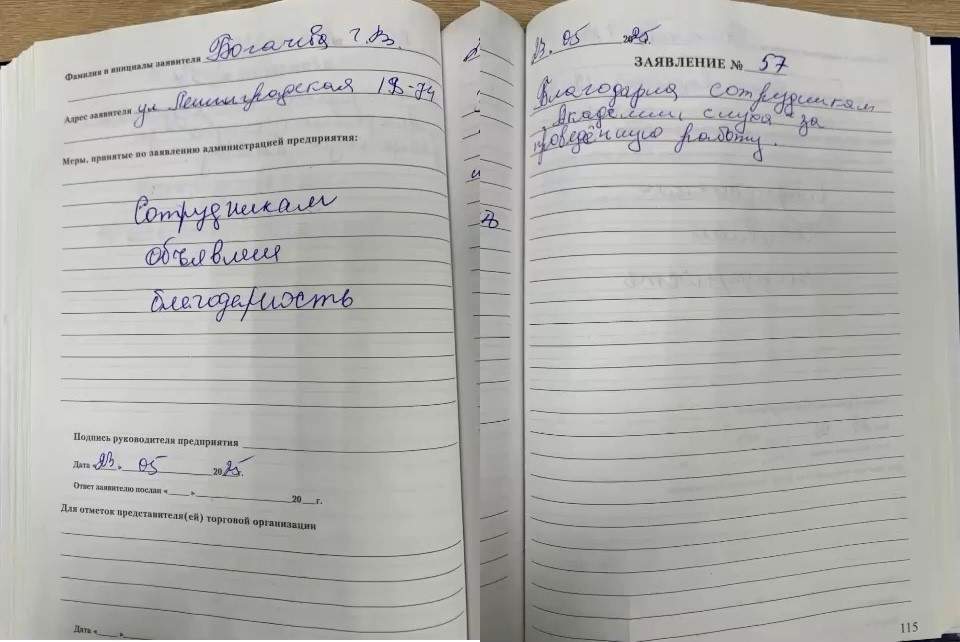 Фамилия и инициалы заявителя Богачёва Г.В.
Адрес заявителя ул Ленинградская 1В-74
Меры, принятые по заявлению администрацией предприятия:
Сотрудникам
объявлена
благодарность
Подпись руководителя предприятия
Дата «23» 05 2025г.
Ответ заявителю послан «___» ___ 20__г.
Для отметок представителя(ей) торговой организации
Дата «___»
23. 05 2025г.
ЗАЯВЛЕНИЕ № 57
Благодарна сотрудникам
Академии слуха за
проведённую работу.
115